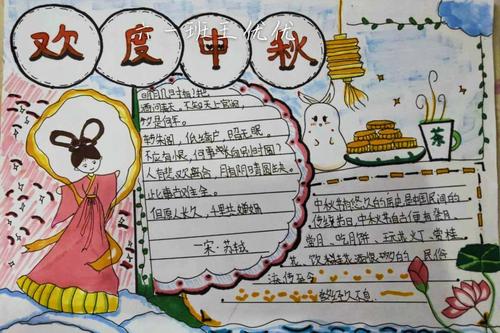 一一班王优优
欢度申秋
明月几时有?把
酒问青天。不知天上宫阙,
今夕是何年。
转朱阁,低绮户,照无眠。
不应有恨,何事长向别时圆?
人有悲欢离合,月有阴晴圆缺,
此事古难全。
但愿人长久,千里共婵娟
—宋·苏轼
茶
中秋节悠久的历史是中国民间的
传统节日,中秋节自古便有祭月
赏月、吃月饼、玩花灯、赏桂
花、饮桂花酒 民俗
流传至今
经久不息